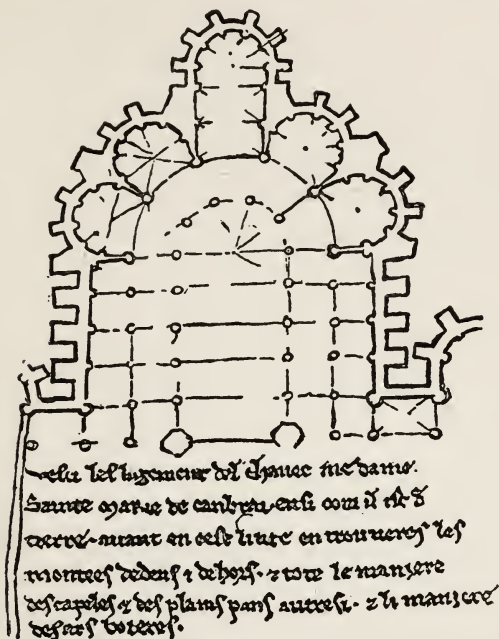 Vesci lesligement del chavec medame
Sainte marie de canbrai ensi com il ist d
terre. avant en cest livre en trouveres les
montees dedens & dehors. & tote le maniere
des capeles & des plains pans autresi. & li maniere
des ars boteres.